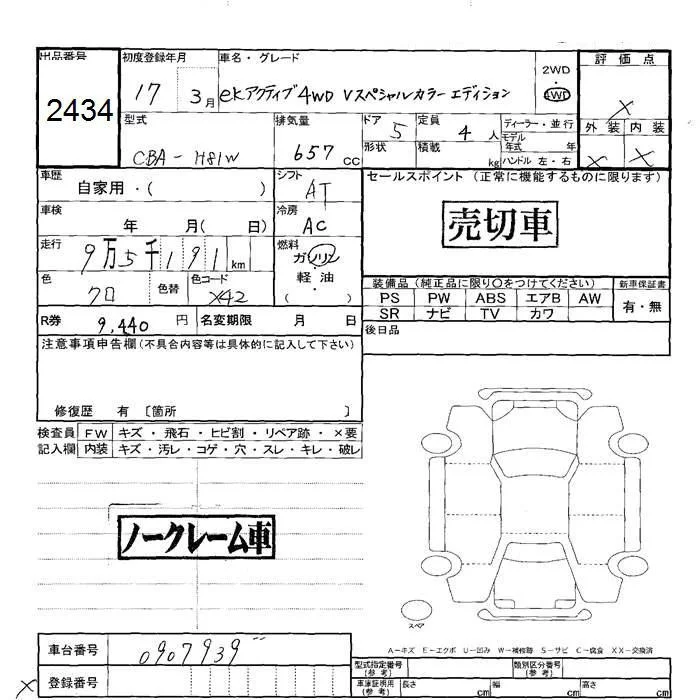 出品番号
2434
初度登録年月
17 3月
車名・グレード
ekアクティブ4WD Vスペシャルカラーエディション
2WD
・
4WD
評価点
X
外装 内装
X X
型式
CBA-H81W
排気量
657cc
ドア
5
形状
定員
4人
積載
kg
ディーラー・並行
モデル
年式 年
ハンドル 左・右
車歴
自家用・( )
シフト
AT
セールスポイント(正常に機能するものに限ります)
売切車
車検
年 月( 日)
冷房
AC
走行
9万5千191km
燃料
ガソリン
軽油
( )
色
クロ
色替
色コード
X42
装備品(純正品に限り○をつけてください)
新車保証書
PS PW ABS エアB AW
SR ナビ TV カワ
有・無
R券 9,440円
名変期限 月 日
後日品
注意事項申告欄(不具合内容等は具体的に記入して下さい)
修復歴 有 〔箇所 〕
検査員
記入欄
FW キズ・飛石・ヒビ割・リペア跡・×要
内装 キズ・汚レ・コゲ・穴・スレ・キレ・破レ
ノークレーム車
スペア
A-キズ E-エクボ U-凹み W-補修跡 S-サビ C-腐食 XX-交換済
車台番号
0907939
登録番号
X
型式指定番号
(参考)
類別区分番号
(参考)
車庫証明用
(参考)
長さ cm 幅 cm 高さ cm